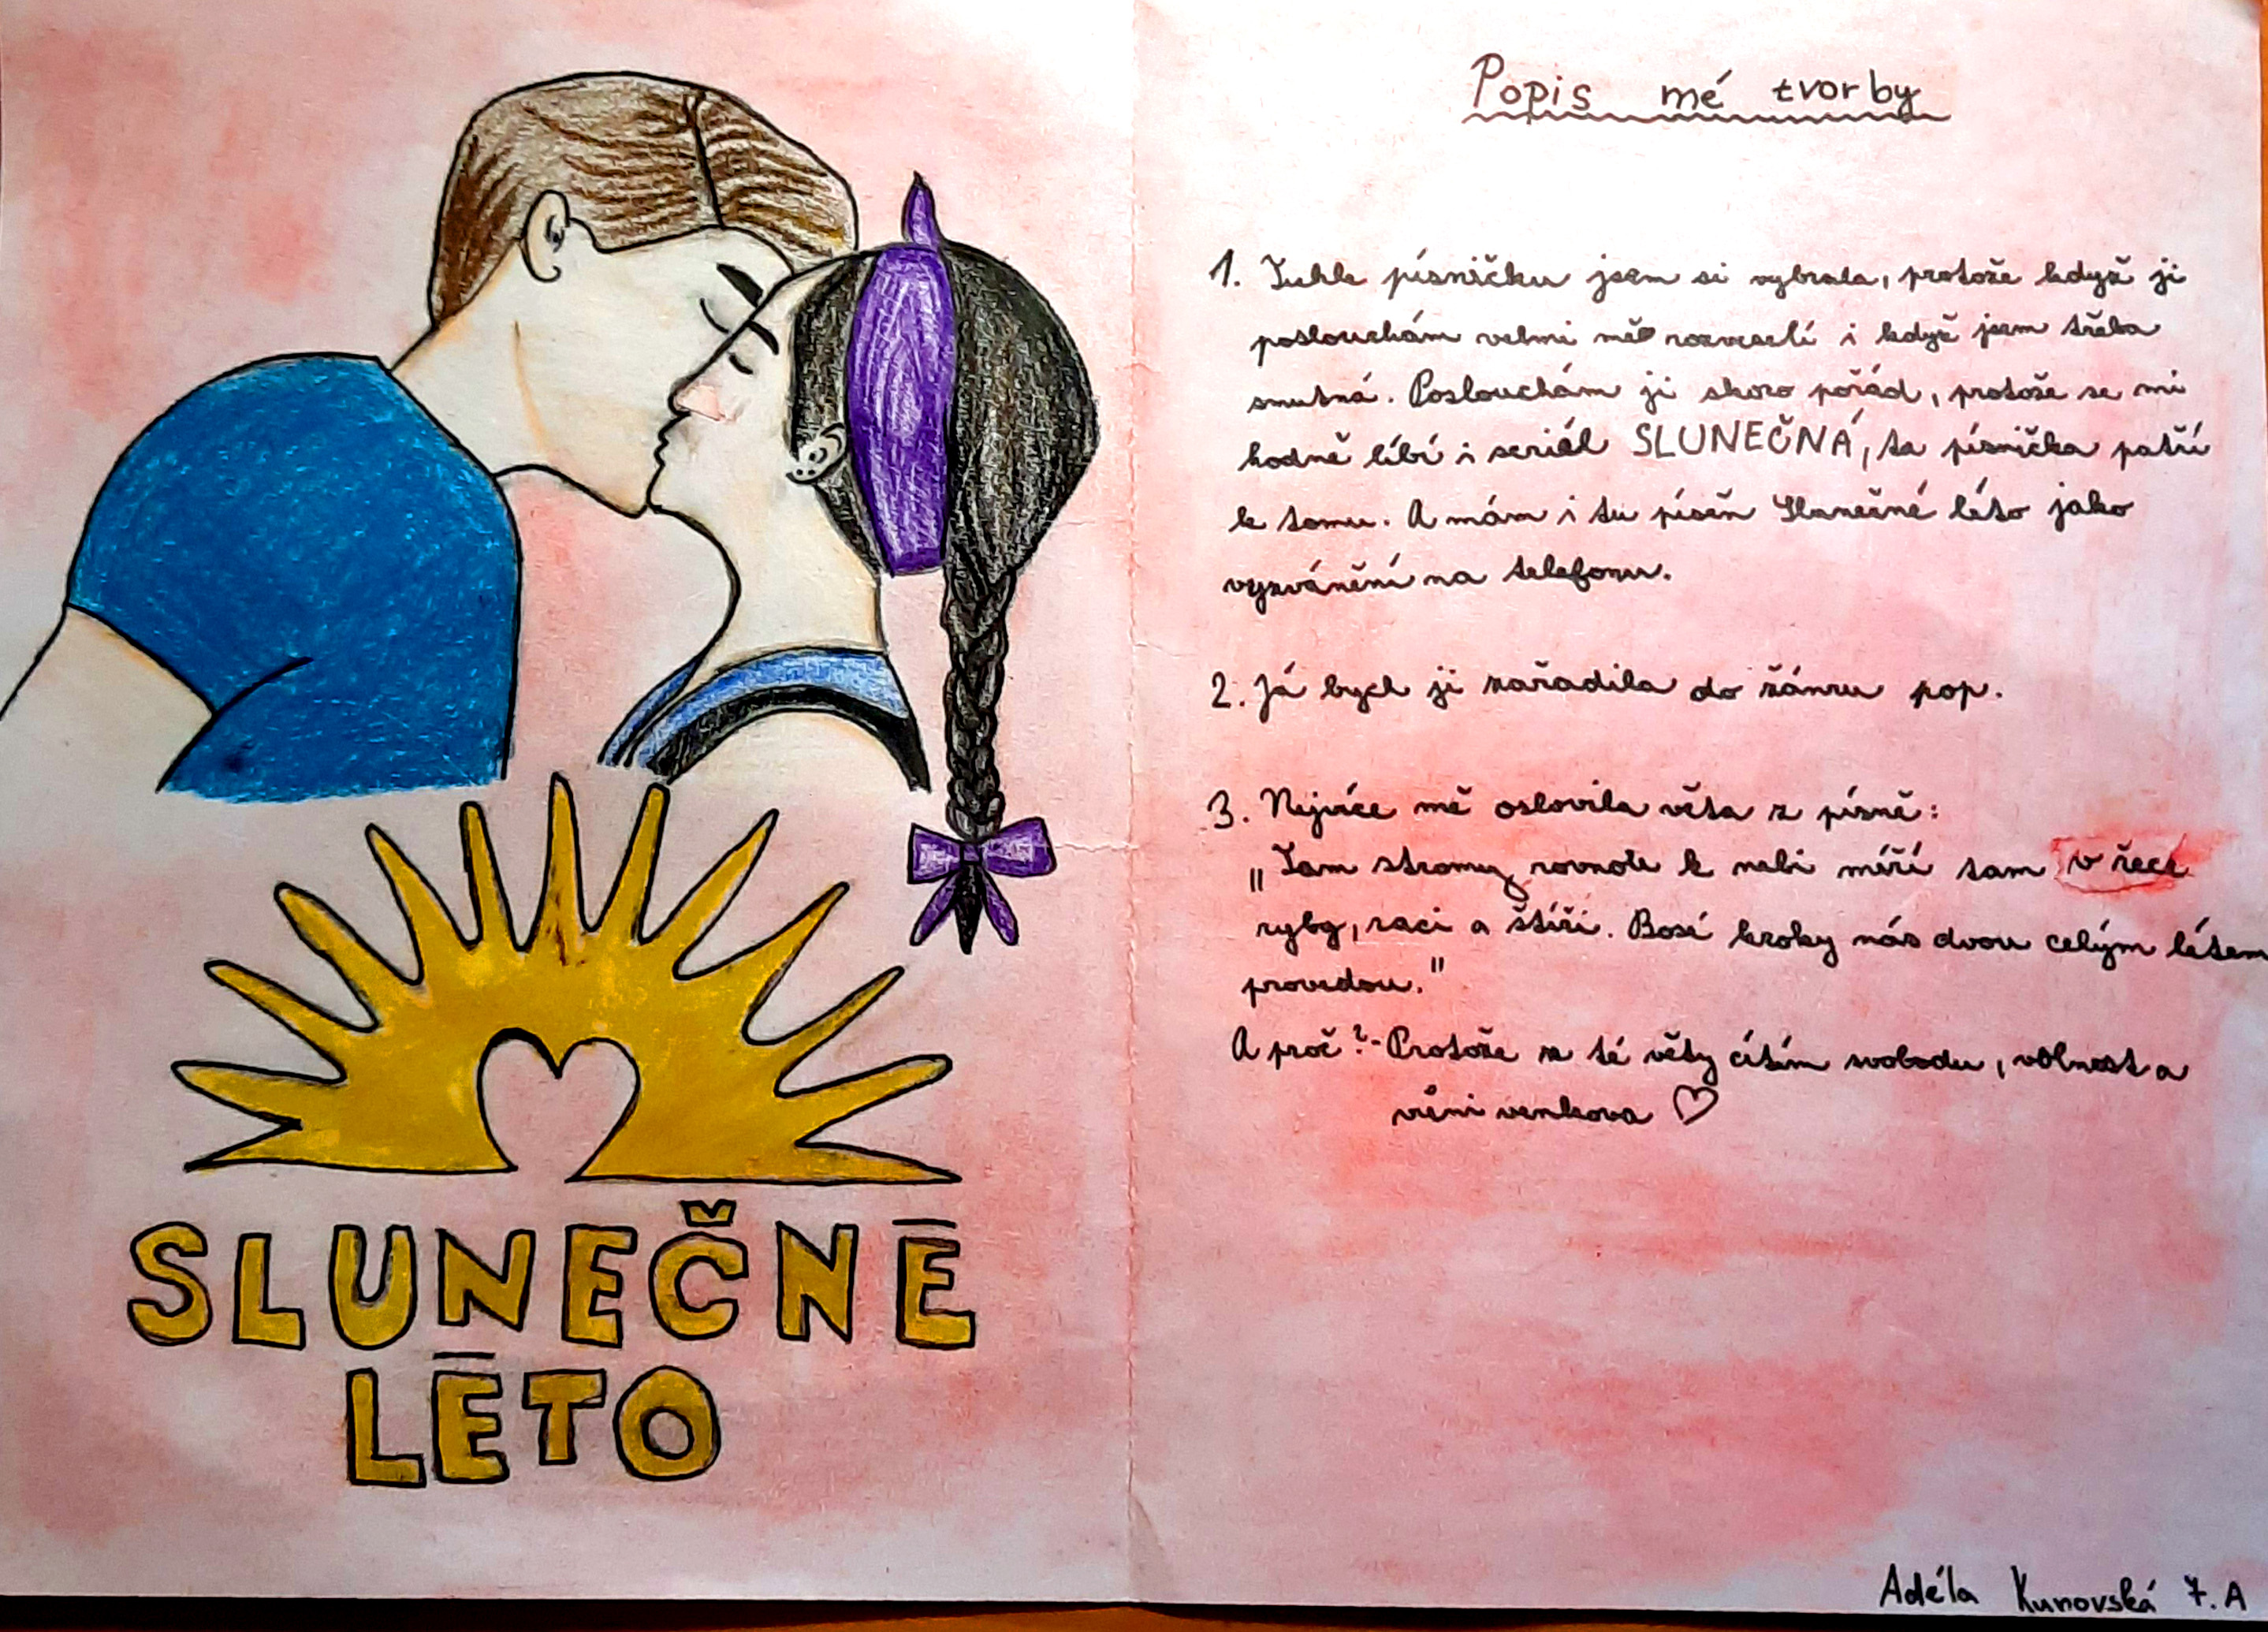 SLUNEČNÉ
LÉTO
Popis mé tvorby
1. Tuhle písničku jsem si vybrala, protože když ji
poslouchám velmi mě rozveselí i když jsem třeba
smutná. Poslouchám ji skoro pořád, protože se mi
hodně líbí i seriál SLUNEČNÁ, ta písnička patří
k tomu. A mám i tu píseň Slunečné léto jako
vyzvánění na telefonu.
2. Já bych ji zařadila do žánru pop.
3. Nejvíce mě oslovila věta z písně:
„Tam stromy rovnou k nebi míří tam v řece
ryby, raci a štíři. Bosé kroky nás dvou celým létem
provedou."
A proč?- Protože z té věty cítím svobodu, volnost a
vůni venkova ♡
Adéla Kunovská 7.A